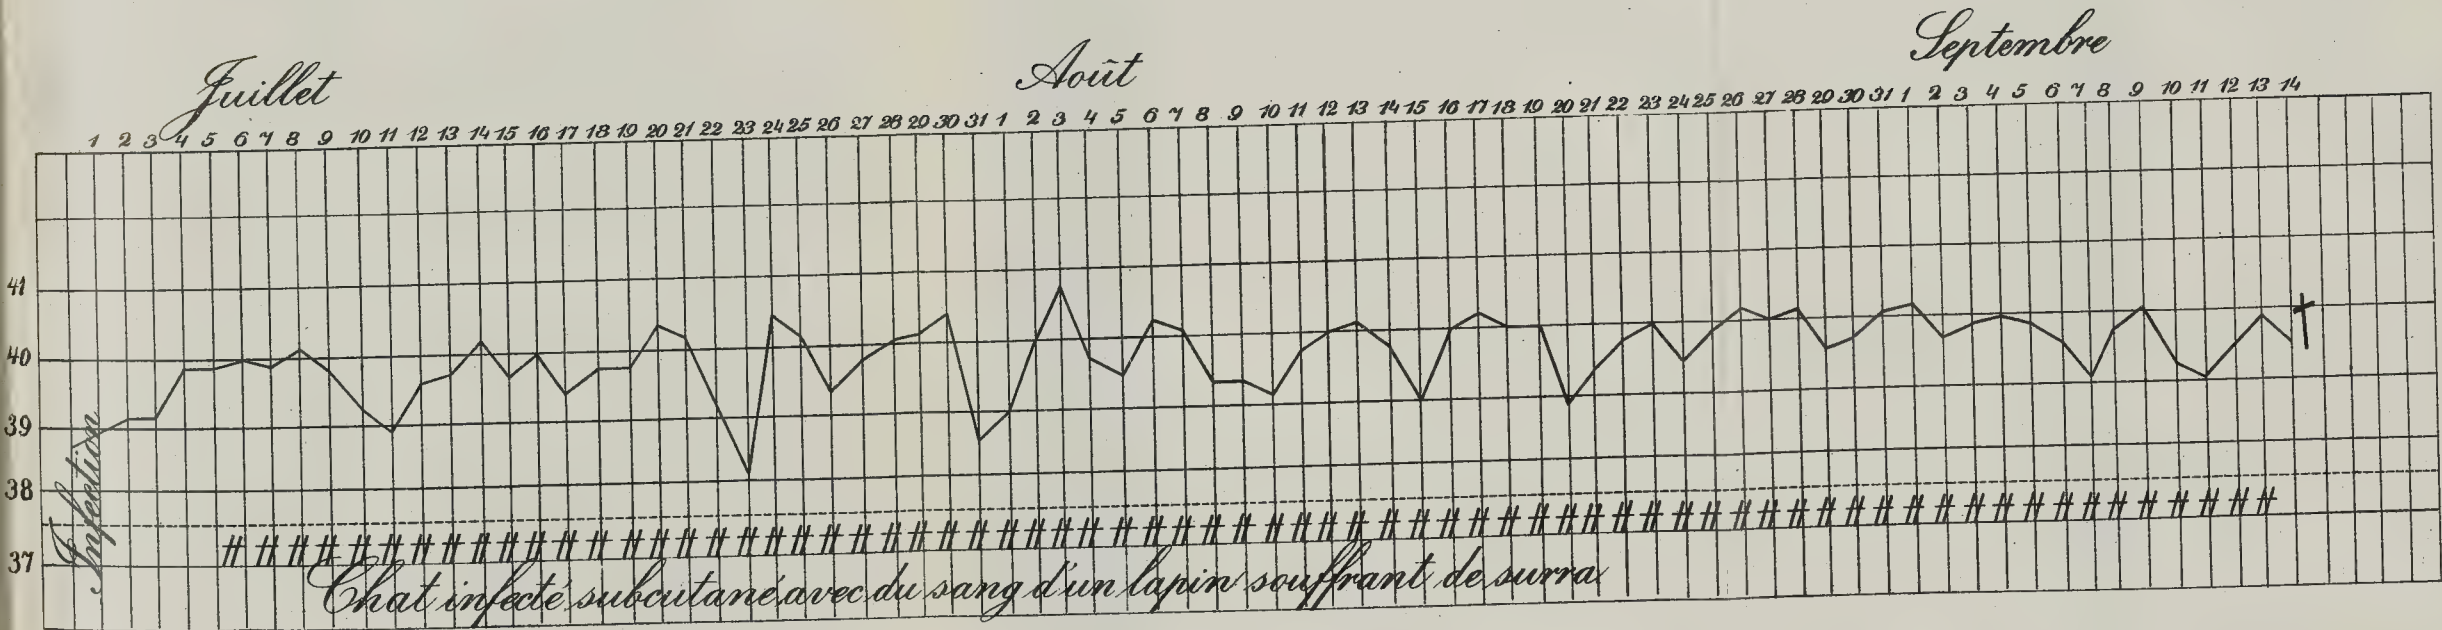 Juillet Août Septembre
1 2 3 4 5 6 7 8 9 10 11 12 13 14 15 16 17 18 19 20 21 22 23 24 25 26 27 28 29 30 31 1 2 3 4 5 6 7 8 9 10 11 12 13 14 15 16 17 18 19 20 21 22 23 24 25 26 27 28 29 30 31 1 2 3 4 5 6 7 8 9 10 11 12 13 14
41
40
39
38
37
Infection
# # # # # # # # # # # # # # # # # # # # # # # # # # # # # # # # # # # # # # # # # # # # # # # # # # # # # # # # # # # # # # # # # # # # # #
Chat infecté subcutané avec du sang d'un lapin souffrant de surra